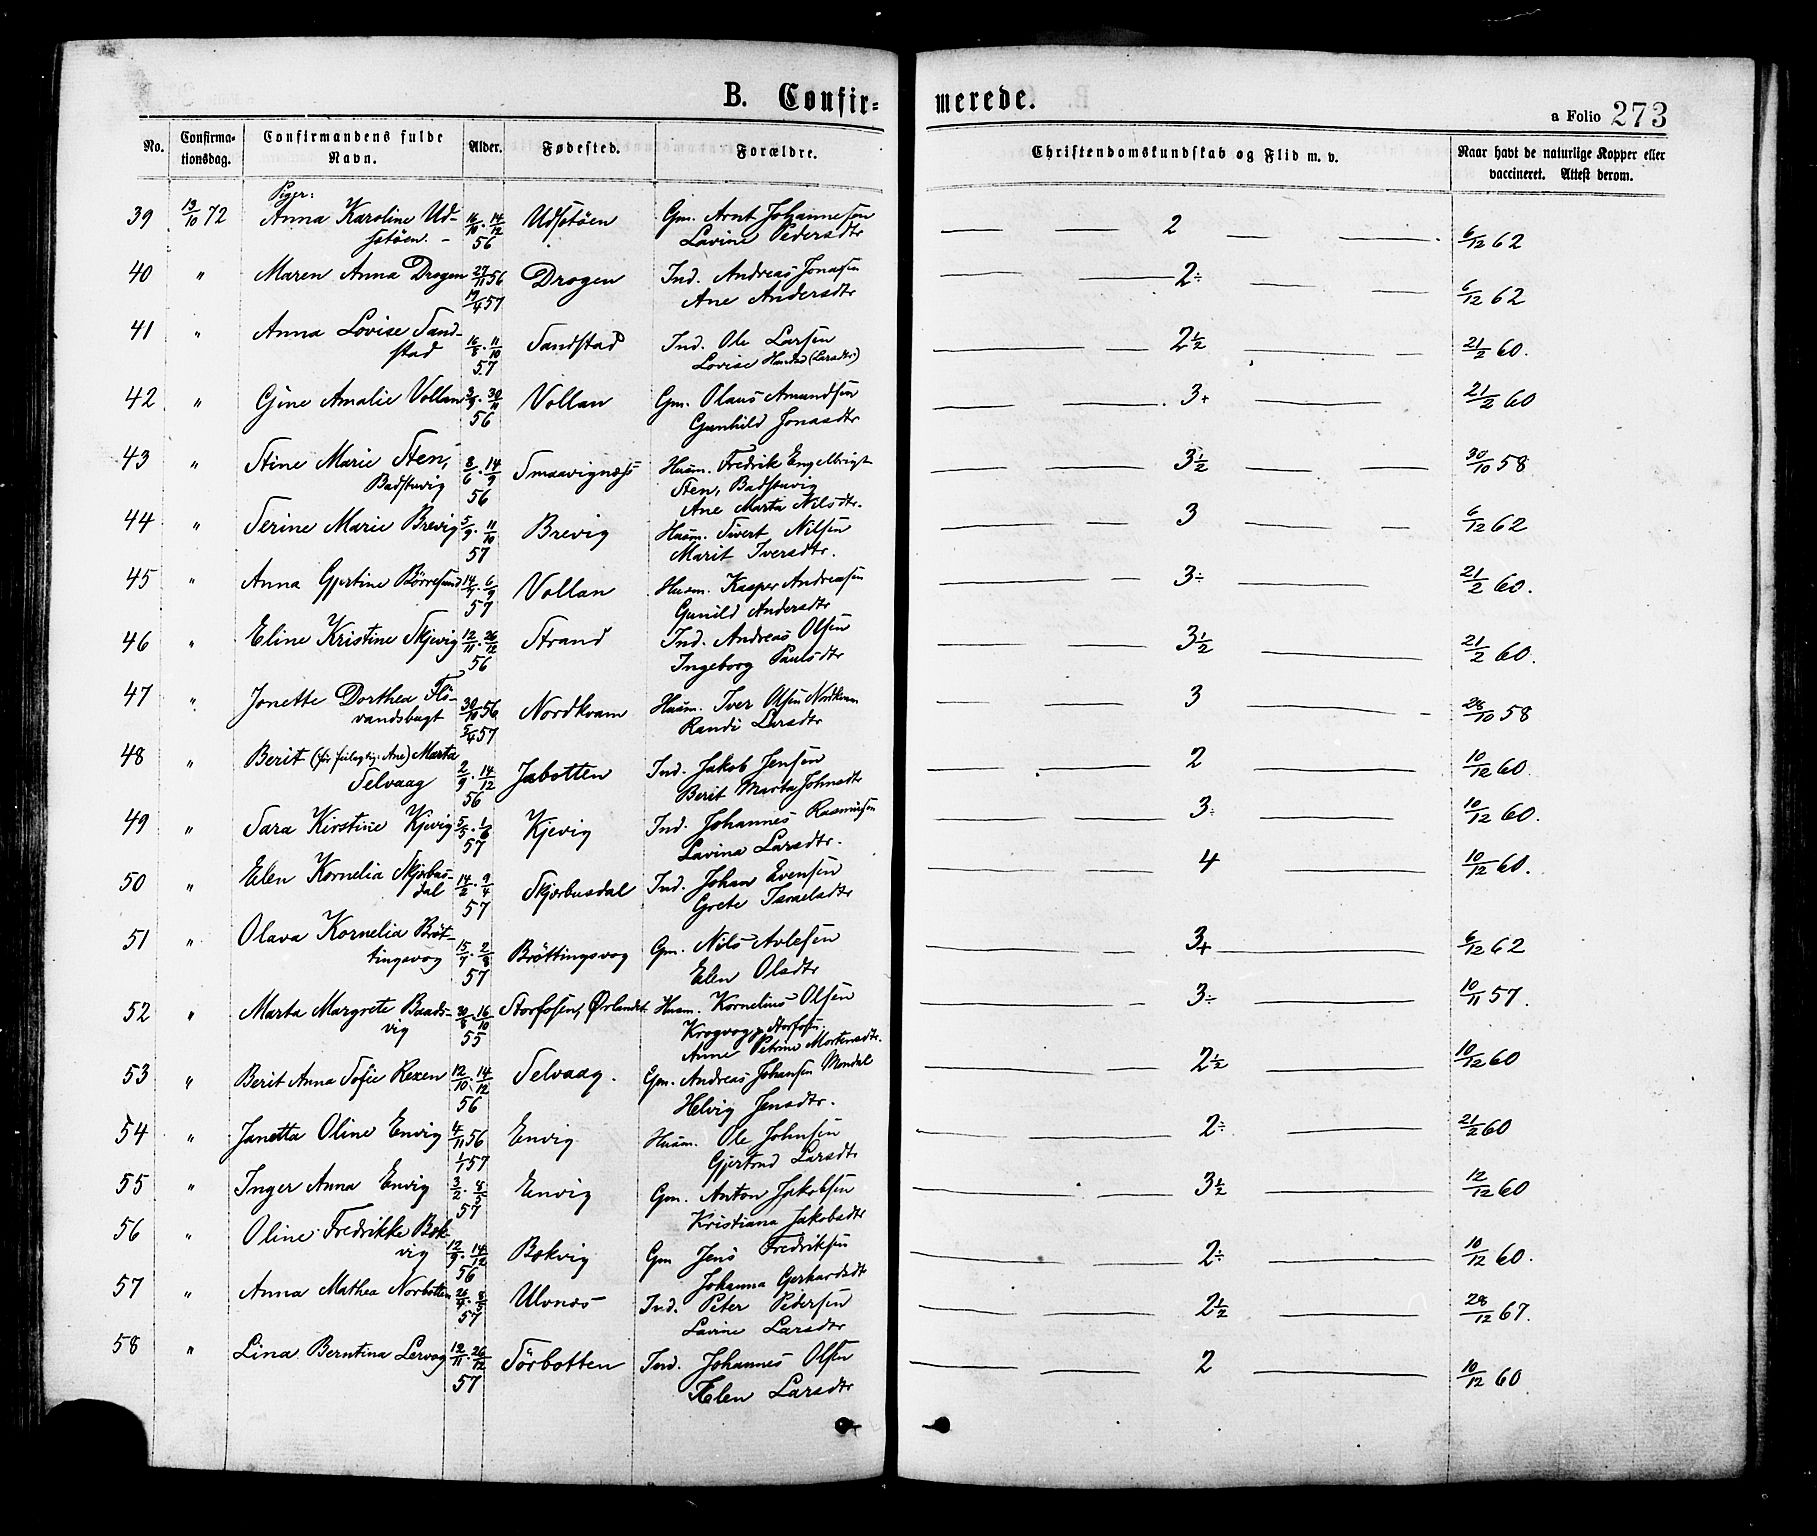 B. Confir-
merede.
a Folio 273
No. Confirmationsdag. Confirmandens fulde Navn. Alder. Fødested. Forældre. Christendomskundskab og Flid m. v. Naar havt de naturlige Kopper eller vaccineret. Attest derom.
Piger:
39 13/10 72 Anna Karoline Ud- 16/10. 14/12 Udstöen Gm. Arnt Johannesen 2 6/12 62
stöen. 56 Lavine Pedersdtr
40 " Maren Anna Drogen 27/11 56 Drogen Ind. Andreas Jonasen 2÷ 6/12 62
19/4 57 Ane Andersdtr
41 " Anna Lovise Sand- 16/8. 11/10 Sandstad Ind. Ole Larsen 2½ 21/2 60.
stad 57 Lovise (Larsdtr)
42 " Gjine Amalie Vollan 3/9. 30/11 Vollan Gm. Olaus Amundsen 3+ 21/2 60
56 Gunhild Jonasdtr
43 " Stine Marie Sten, 8/6. 14/9 Smaavignæss Husm. Fredrik Engelbrigt 3½ 30/10 58
Badstuvig 56 Sten, Badstuvig
Ane Marta Nilsdtr.
44 " Serine Marie Brevig 5/9. 11/10 Brevig Husm. Sivert Nilsen 3 6/12 62
57 Marit Iversdtr.
45 " Anna Gjertine Börresund 14/7. 6/9 Vollan Husm. Kasper Andreasen 3÷ 21/2 60.
57 Gunild Andersdtr
46 " Eline Kristine Skjevig 12/11. 26/12 Strand Ind. Andreas Olsen 3½ 21/2 60.
56 Ingeborg Paulsdtr
47 " Jonette Dorthea Flö- 30/10 56 Nordkvam Husm. Iver Olsen Nordkvam 3 28/10 58
vandsbugt 3/4 57 Randi Larsdtr
48 " Berit (för feilagtig: Ane) Marta 2/9. 14/12 Jabotten Ind. Jakob Jensen 2 10/12 60.
Selvaag 56 Berit Marta Johnsdtr
49 " Sara Kirstine Kjevig 5/5. 1/6 Kjevig Ind. Johannes Rasmusen 3÷ 10/12 60.
57 Lavina Larsdtr.
50 " Elen Kornelia Skjærbus- 14/2. 9/4 Skjærbusdal Ind. Johan Evensen 4 10/12 60.
dal 57 Grete Israelsdtr
51 " Olava Kornelia Bröt- 15/7. 2/8 Bröttingsvog Gm. Nils Avlesen 3+ 6/12 62
tingsvog 57 Elen Olsdtr
52 " Marta Margrete Baads- 30/8. 16/10 Storfosen, Ørlandet Husm. Kornelius Olsen 3÷ 10/11 57.
vig 55 Krogvog p. Storfosn,
Anne Petrine Mortensdtr.
53 " Berit Anna Sofie Rexen 12/10. 14/12 Selvaag. Gm. Andreas Johansen Mondal 2½ 10/12 60
56 Helvig Jensdtr.
54 " Janetta Oline Envig 4/11 56 Envig Husm. Ole Johnsen 2÷ 21/2 60
1/1 57 Gjertrud Larsdtr
55 " Inger Anna Envig 3/2. 8/3 Envig Gm. Anton Jakobsen 3½ 12/12 60
57 Kristiana Jakobsdtr
56 " Oline Fredrikke Bek- 12/9. 14/12 Bekvig Gm Jens Fredriksen 2÷ 10/12 60.
vig 56 Johanna Gerhardsdtr
57 " Anna Mathea Norbotten 26/4. 8/5 Ulvnæs Ind. Peter Pedersen 2½ 28/12 67.
57 Lavine Larsdtr
58 " Lina Berntina Lervog 12/11. 26/12 Sörbotten Ind. Johannes Olsen 2 10/12 60
57 Elen Larsdtr